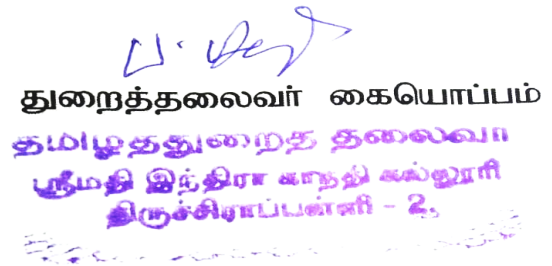 துறைத்தலைவர் கையொப்பம்
தமிழத்துறைத் தலைவர்
ஸ்ரீமதி இந்திரா காந்தி கல்லூரி
திருச்சிராப்பள்ளி - 2.